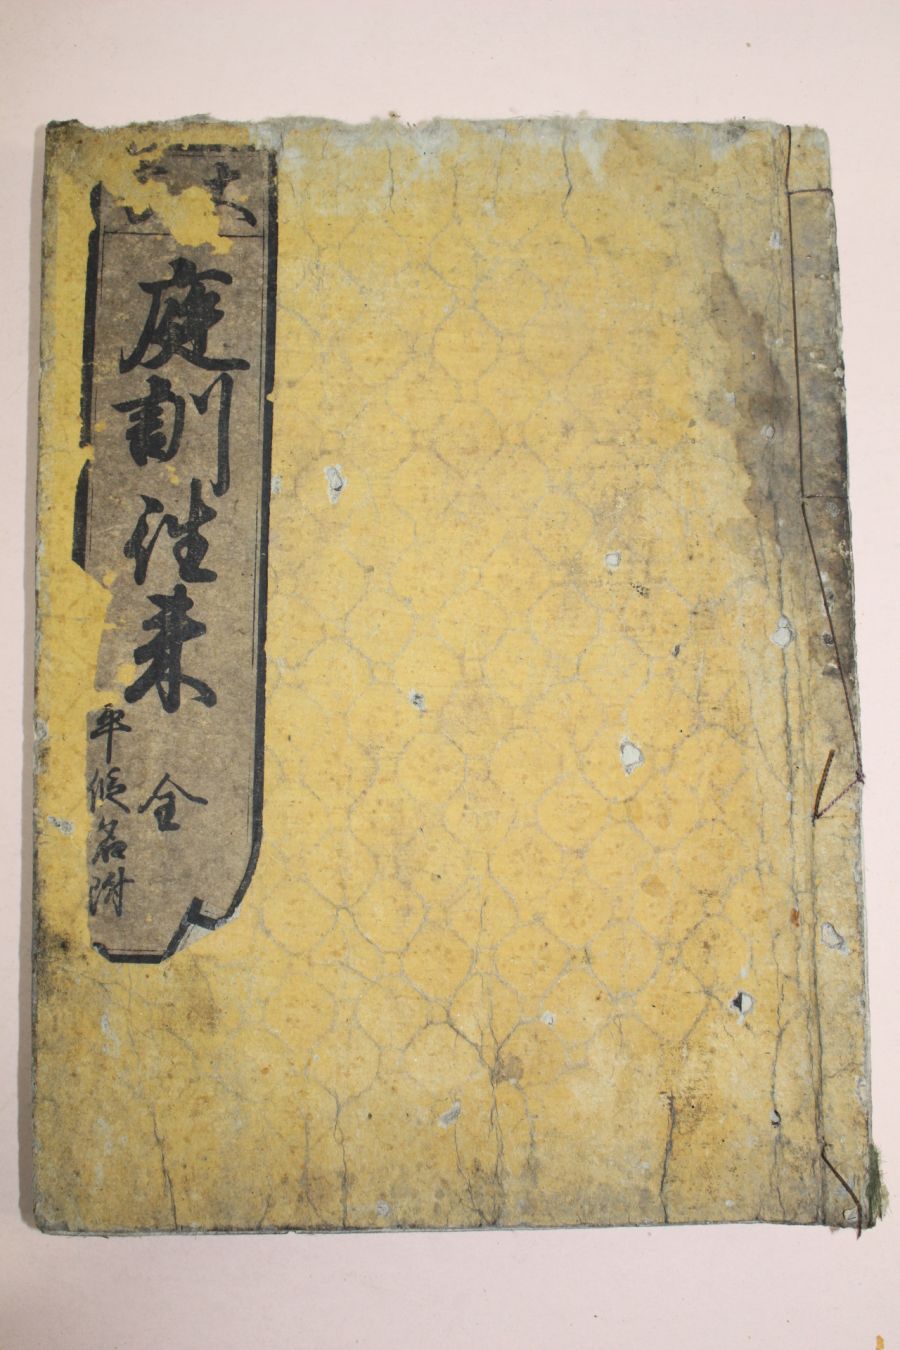 庭訓往来
全
平假名附